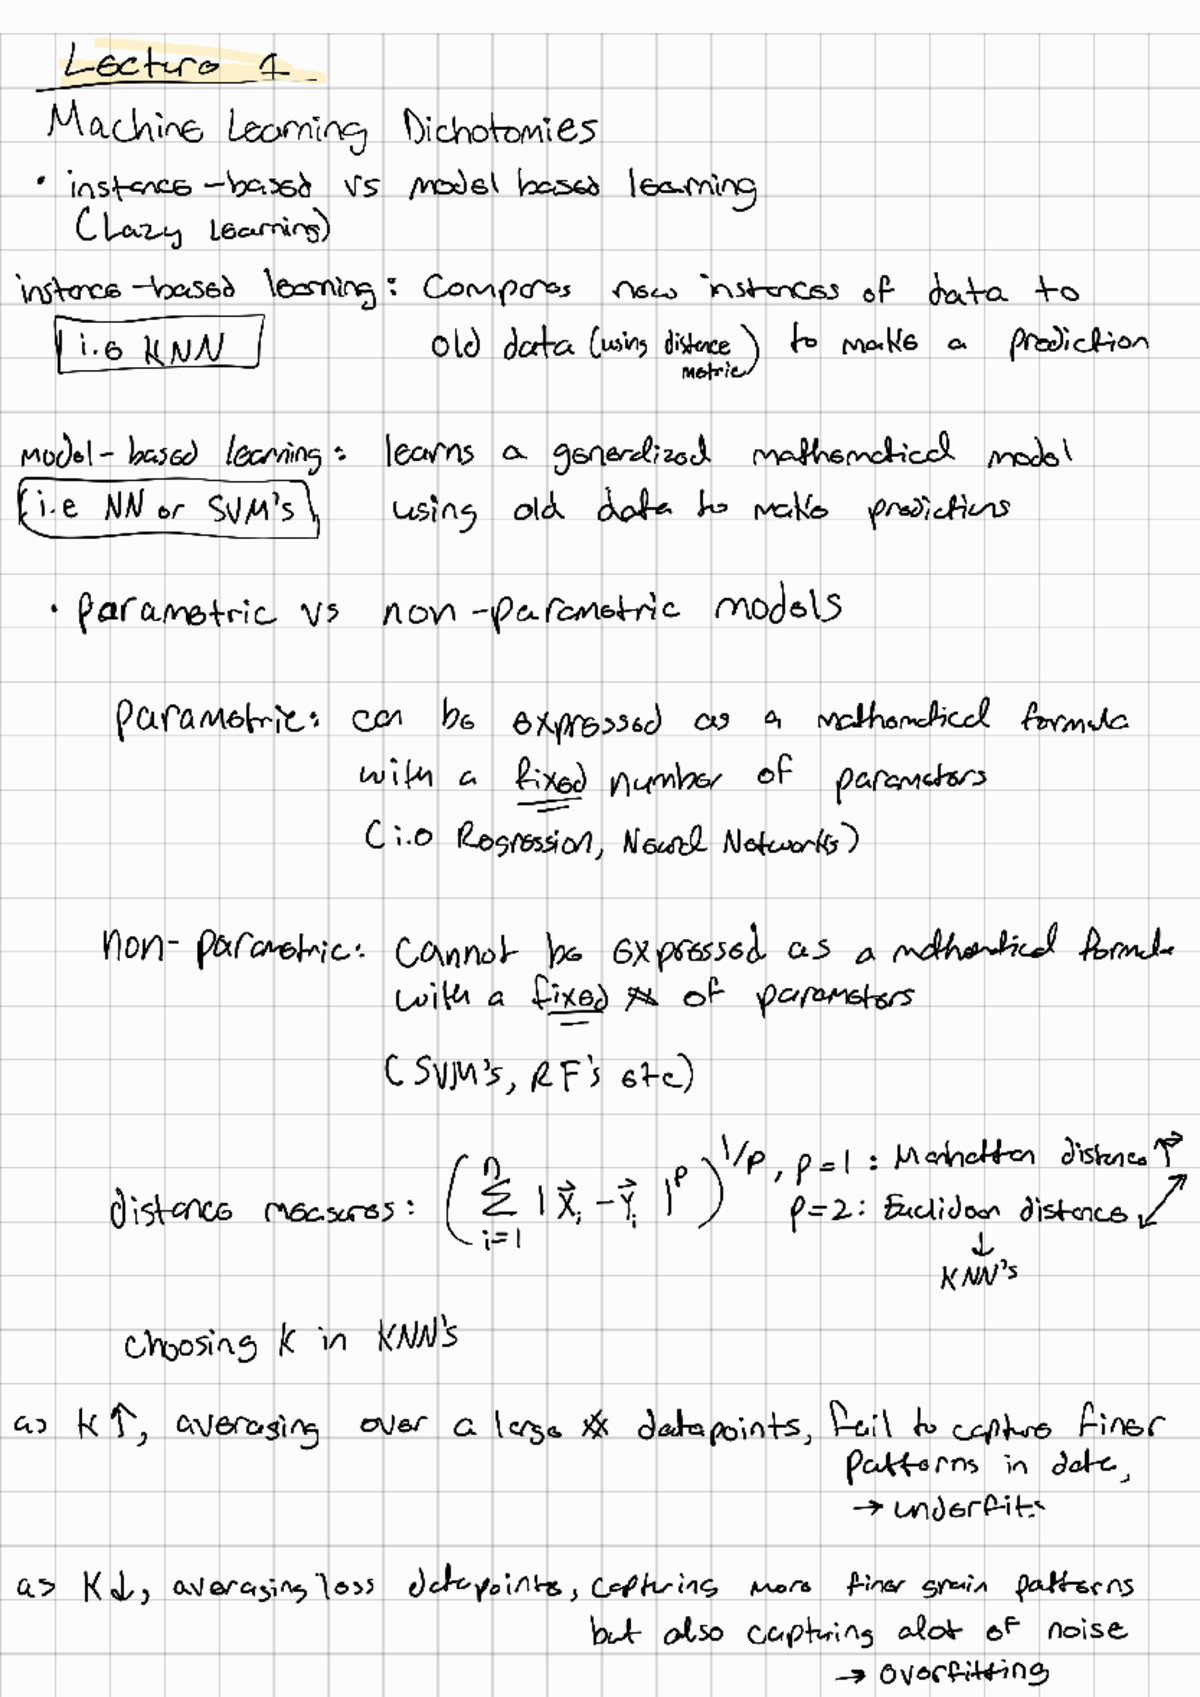 Lecture 1
Machine Learning Dichotomies
• instance-based vs model based learning
(Lazy Learning)
instance-based learning: Compares new instances of data to
i.e KNN old data (using distance metric) to make a prediction
model-based learning: learns a generalized mathematical model
(i.e NN or SVM's) using old data to make predictions
• parametric vs non-parametric models
parametric: can be expressed as a mathematical formula
with a fixed number of parameters
(i.e Regression, Neural Networks)
non-parametric: Cannot be expressed as a mathematical formula
with a fixed # of parameters
(SVM's, RF's etc)
distance measures: (∑_{i=1}^{n} |x⃗_i - y⃗_i|^p)^{1/p}, p=1: Manhattan distance ↑→
p=2: Euclidean distance ↗
↓
KNN's
choosing K in KNN's
as K↑, averaging over a large # datapoints, fail to capture finer
patterns in data,
→ underfits
as K↓, averaging less datapoints, capturing more finer grain patterns
but also capturing alot of noise
→ overfitting